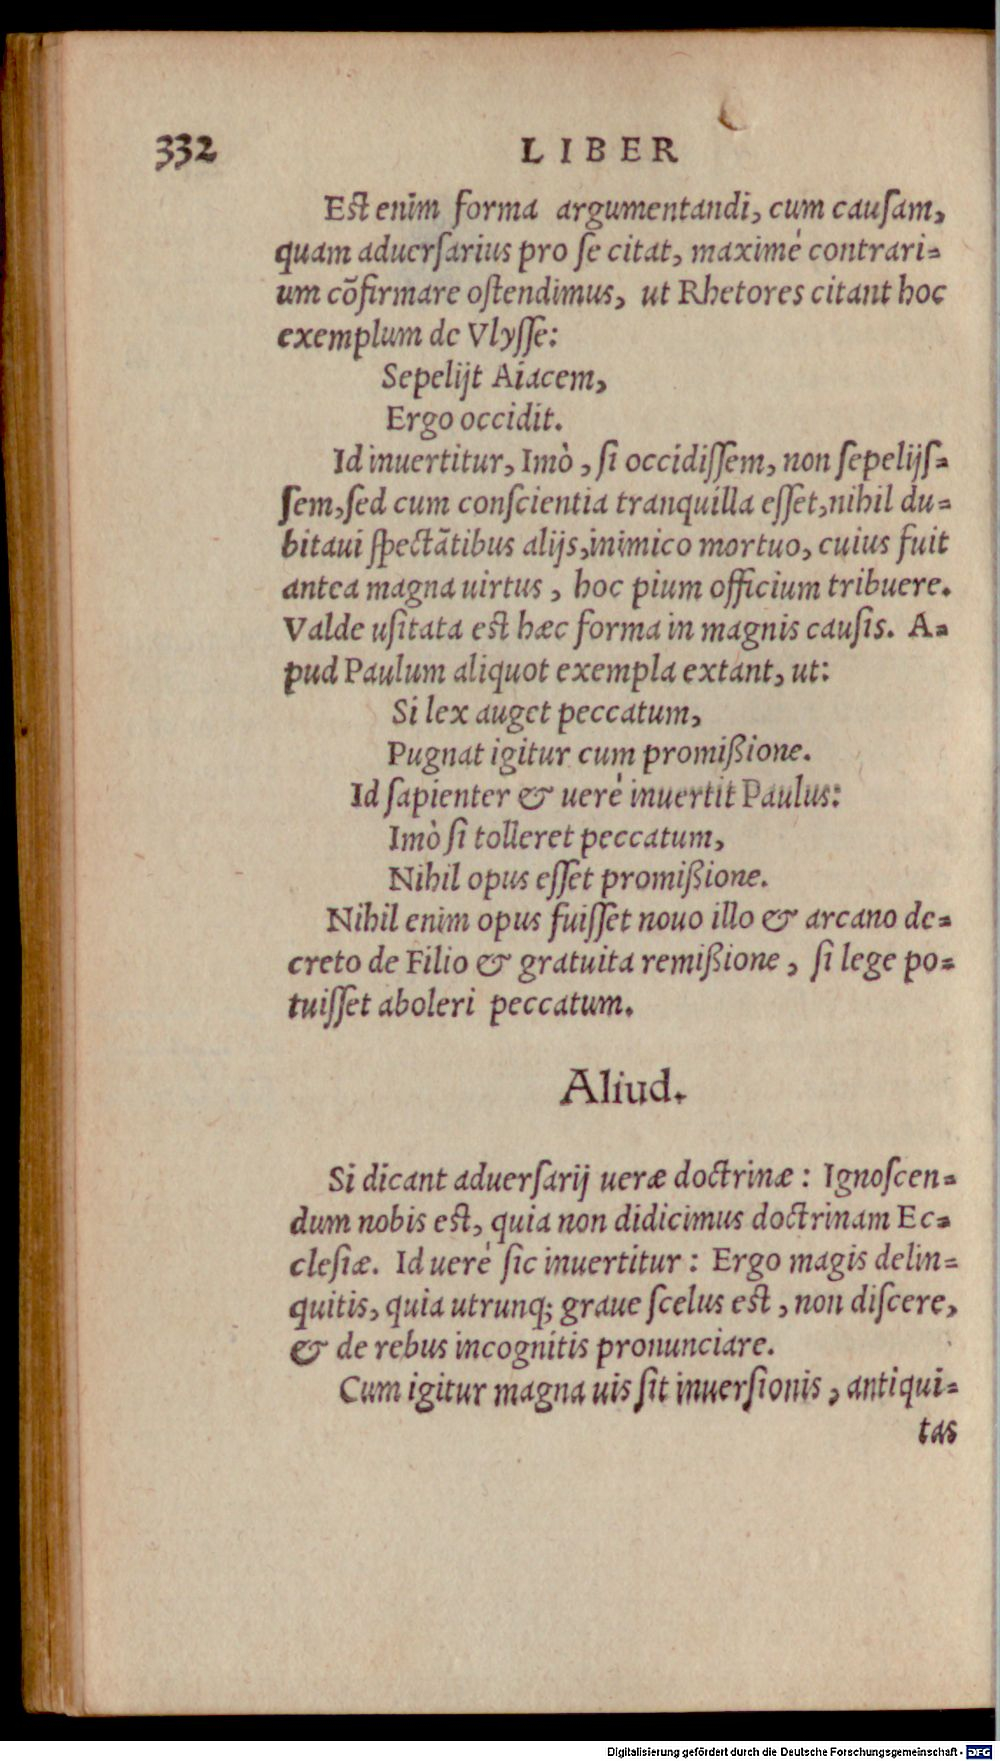 332 LIBER
Est enim forma argumentandi, cum cauſam,
quam aduerſarius pro ſe citat, maximé contrari-
um cõfirmare oſtendimus, ut Rhetores citant hoc
exemplum de Vlyſſe:
Sepelijt Aiacem,
Ergo occidit.
Id inuertitur, Imò, ſi occidiſſem, non ſepelijſ-
ſem, ſed cum conſcientia tranquilla eſſet, nihil du-
bitaui ſpectãtibus alijs, inimico mortuo, cuius fuit
antea magna uirtus, hoc pium officium tribuere.
Valde uſitata est hæc forma in magnis cauſis. A-
pud Paulum aliquot exempla extant, ut:
Si lex auget peccatum,
Pugnat igitur cum promißione.
Id ſapienter & uerè inuertit Paulus:
Imò ſi tolleret peccatum,
Nihil opus eſſet promißione.
Nihil enim opus fuiſſet nouo illo & arcano de-
creto de Filio & gratuita remißione, ſi lege po-
tuiſſet aboleri peccatum.
Aliud.
Si dicant aduerſarij ueræ doctrinæ: Ignoſcen-
dum nobis est, quia non didicimus doctrinam Ec-
cleſiæ. Id uerè ſic inuertitur: Ergo magis delin-
quitis, quia utrunq; graue ſcelus est, non diſcere,
& de rebus incognitis pronunciare.
Cum igitur magna uis ſit inuerſionis, antiqui-
tas
Digitalisierung gefördert durch die Deutsche Forschungsgemeinschaft - DFG